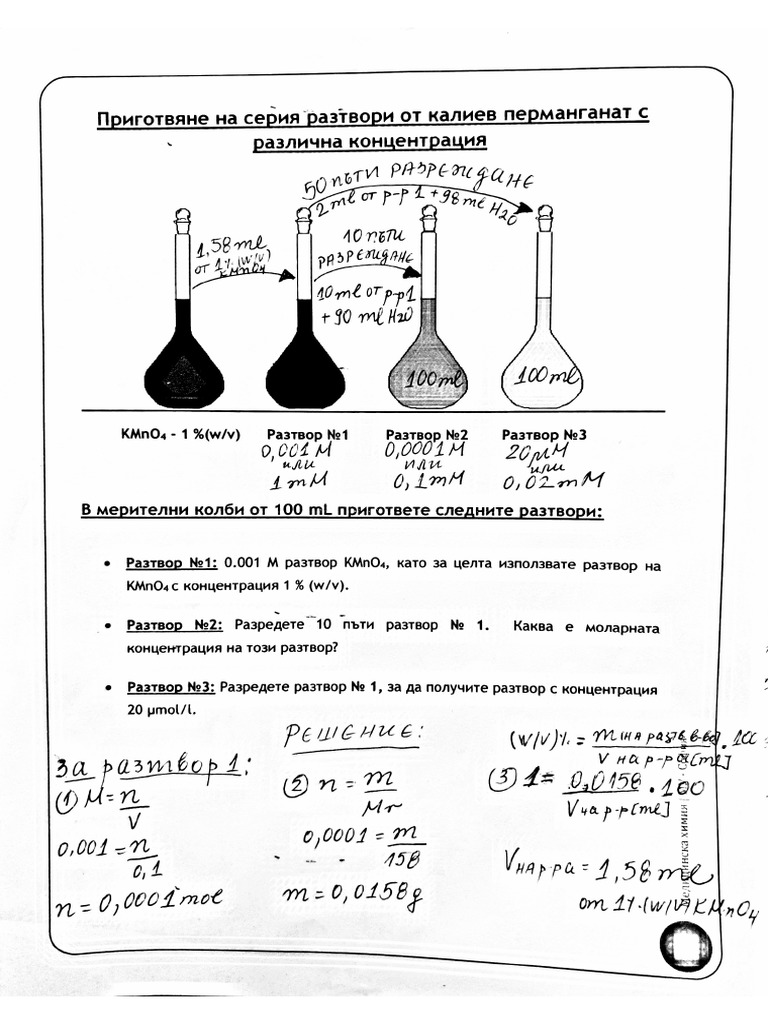 Приготвяне на серия разтвори от калиев перманганат с
различна концентрация
50 ПЪТИ РАЗРЕЖДАНЕ
2 ml от р-р 1 + 98 ml H2O
1,58 ml
от 1% (w/v)
KMnO4
10 ПЪТИ
РАЗРЕЖДАНЕ
10 ml от р-р1
+ 90 ml H2O
100 ml
100 ml
KMnO₄ - 1 %(w/v) Разтвор №1 Разтвор №2 Разтвор №3
0,001 M 0,0001 M 20 µM
или или или
1 mM 0,1 mM 0,02 mM
В мерителни колби от 100 mL пригответе следните разтвори:
• Разтвор №1: 0.001 M разтвор KMnO₄, като за целта използвате разтвор на
KMnO₄ с концентрация 1 % (w/v).
• Разтвор №2: Разредете 10 пъти разтвор № 1. Каква е моларната
концентрация на този разтвор?
• Разтвор №3: Разредете разтвор № 1, за да получите разтвор с концентрация
20 µmol/l.
РЕШЕНИЕ:
За разтвор 1:
① M = n/V
0,001 = n/0,1
n = 0,0001 mol
② n = m/Mr
0,0001 = m/158
m = 0,0158 g
(w/v)% = m(на разтв. в-во)/V на р-р [ml] · 100
③ 1 = 0,0158/V на р-р [ml] · 100
V на р-ра = 1,58 ml
от 1% (w/v) KMnO4
химия